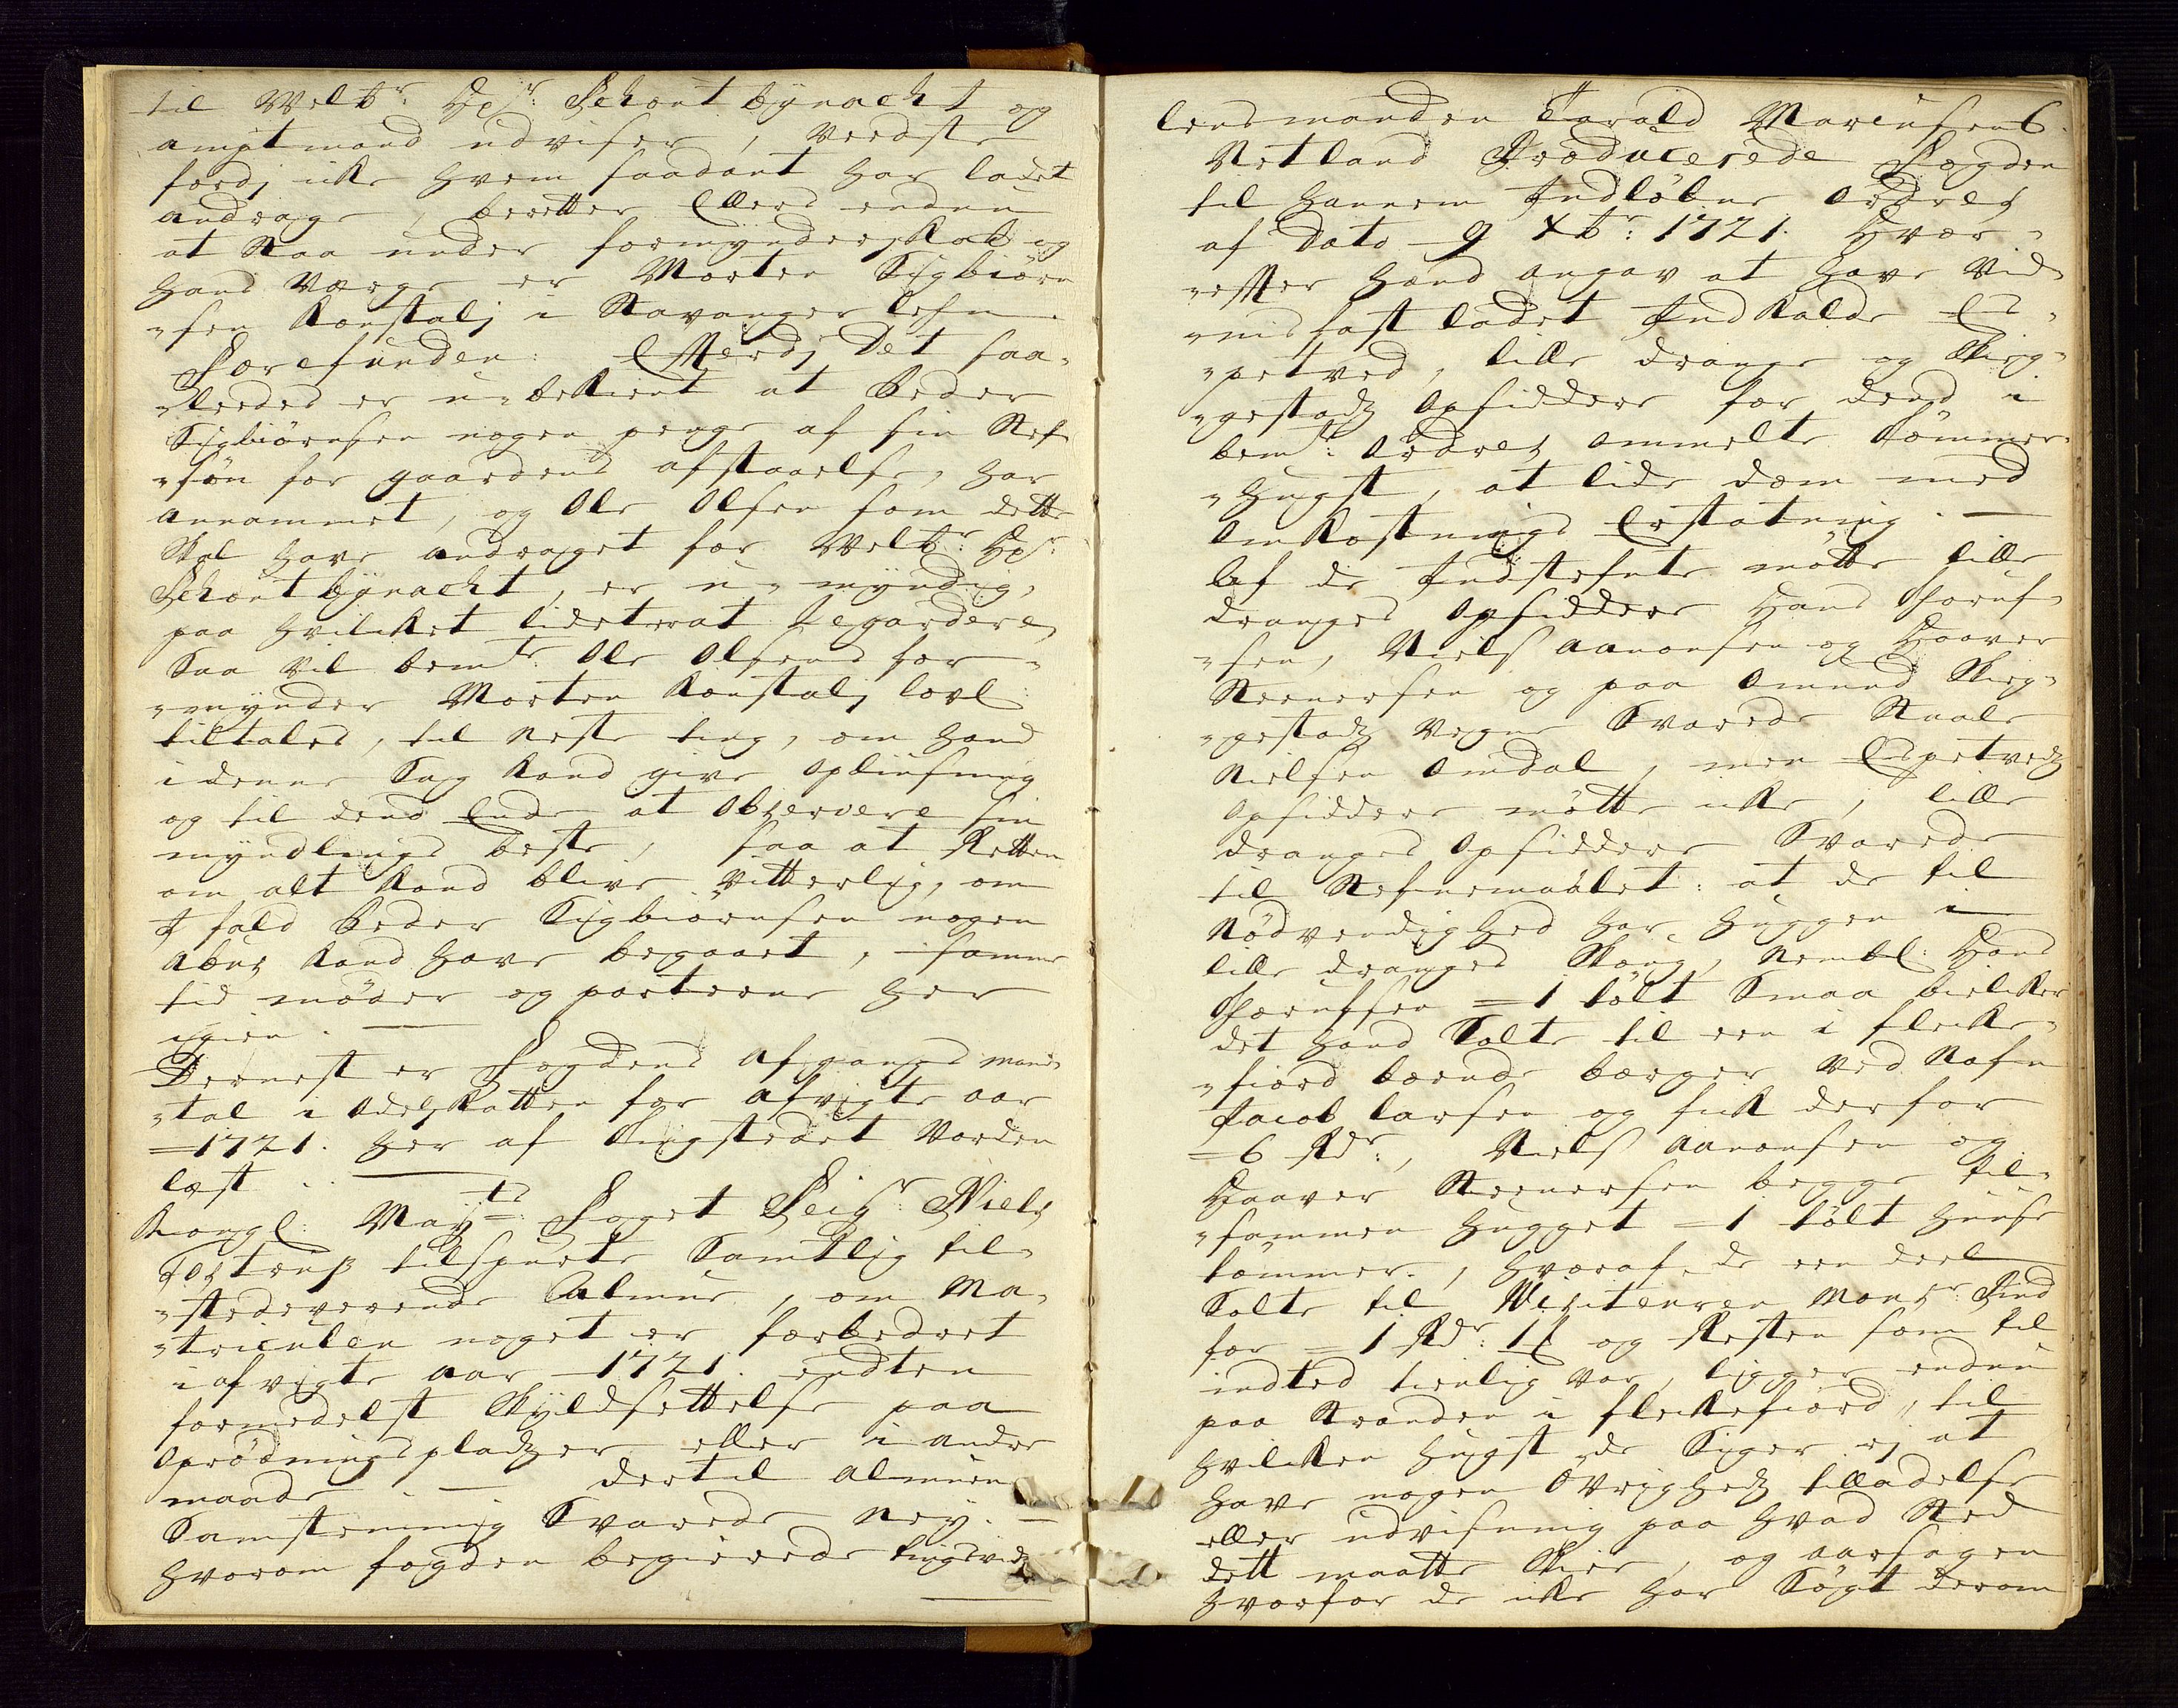 til Welbr: Hr: Schoutbÿnacht og
ambtmand udviser, veedste
ferdj icke hvem saadant har ladet
andrage, beretter Ellers endnu
at staa under formÿnderskab og
hans værge er Morten Sigbiørn
"sen Konstalj i Stavanger Lehn.
Sorefunden: Efterdj det saa„
„ledes er u-bekient at Peder
Sigbiørnsen nogen penge af sin Stef
„søn for gaardens afstaaelse, har
annammet, og Ole Olsen som dette
skal have andraget for Welbr: Hr:
Schoutbÿnacht, er u„mÿndig,
paa hvilcket lideterat Regardere,
Saa vil bemte: Ole Olsens for„
„mÿnder Morten Konstalj lovl:
tiltales, til neste ting, om hand
i denne Sag kand give Opliusning
og til dend Ende at Observere sin
mÿndlings beste, saa at Retten
om alt kand blive vitterlig, om
I fald Peder Sigbiørnsen nogen
Abus kand have begaaet, samme
tid møder og parterne her
igien.
Dernest er Fogdens afgangs mand„
„tal i Odelskatten for afvigte aar
1721. her af tingstedet vorden
læst.
Kongl: Maÿts: Foget Seigr: Niels
Tostrup tilspurte Samtlig til„
„stedeværende Almue, om Ma„
„triculen noget er forbedret
i afvigte aar 1721. endten
formedelst Skÿldsettelse paa
Oprødningspladzer eller i andre
maade. dertil almuen
Samstemmig Svarede neÿ.
hvorom fogden begierede tingsvid
Lensmanden Tarald Mariusen 6.
Netland Producerede Fogden
til hannem Indløbne Ordres
af Dato 9 Xbr: 1721. Hvor„
„effter hand angav at have vid„
„nisfast ladet Indkalde Es„
„petved, lille drange og Skieg„
„gestadz Opsiddere for dend i
bemte: Ordres ommelte tømmer„
„hugst, at lide dom med
Omkostnings Erstatning.
Af de Indstefnte møtte lille
dranges Opsiddere Hans Thoruf„
„sen, Niels Aanonsen og Haaver
Steenersen og paa Omund Skieg„
„gestadz vegne Svarede Staale
Nielsen Omdal, men Espetvedz
Opsiddere møtte icke, lille
dranges Opsiddere Svarede
til Stefnemaalet: at de til
Nødvendighed har huggen i
lille dranges Skoug, Nembl: Hans
Thorufsen 1 tølt Smaa bielcker
det hand Solte til een i Flecke„
„fiord boende borger ved Nafn
Jacob Larsen og fick derfor
6 Rdr:, Niels Aanonsen og
Haaver Steenersen begge til„
„sammen hugget 1 tølt huuse
tømmer, hvoraf de een deel
Solte til Visiteuren Monsr: Lind
for 1 Rdr: 1 ₰ og Resten som til
indted tienlig var, ligger endnu
paa Stranden i Fleckefiord, til
hvilcken hugst de Siger ej at
have nogen Øvrighedz tilladelse
eller udvisning paa hvad Sted
dett maatte Skie, og aarsagen
hvorfor de icke har Søgt derom